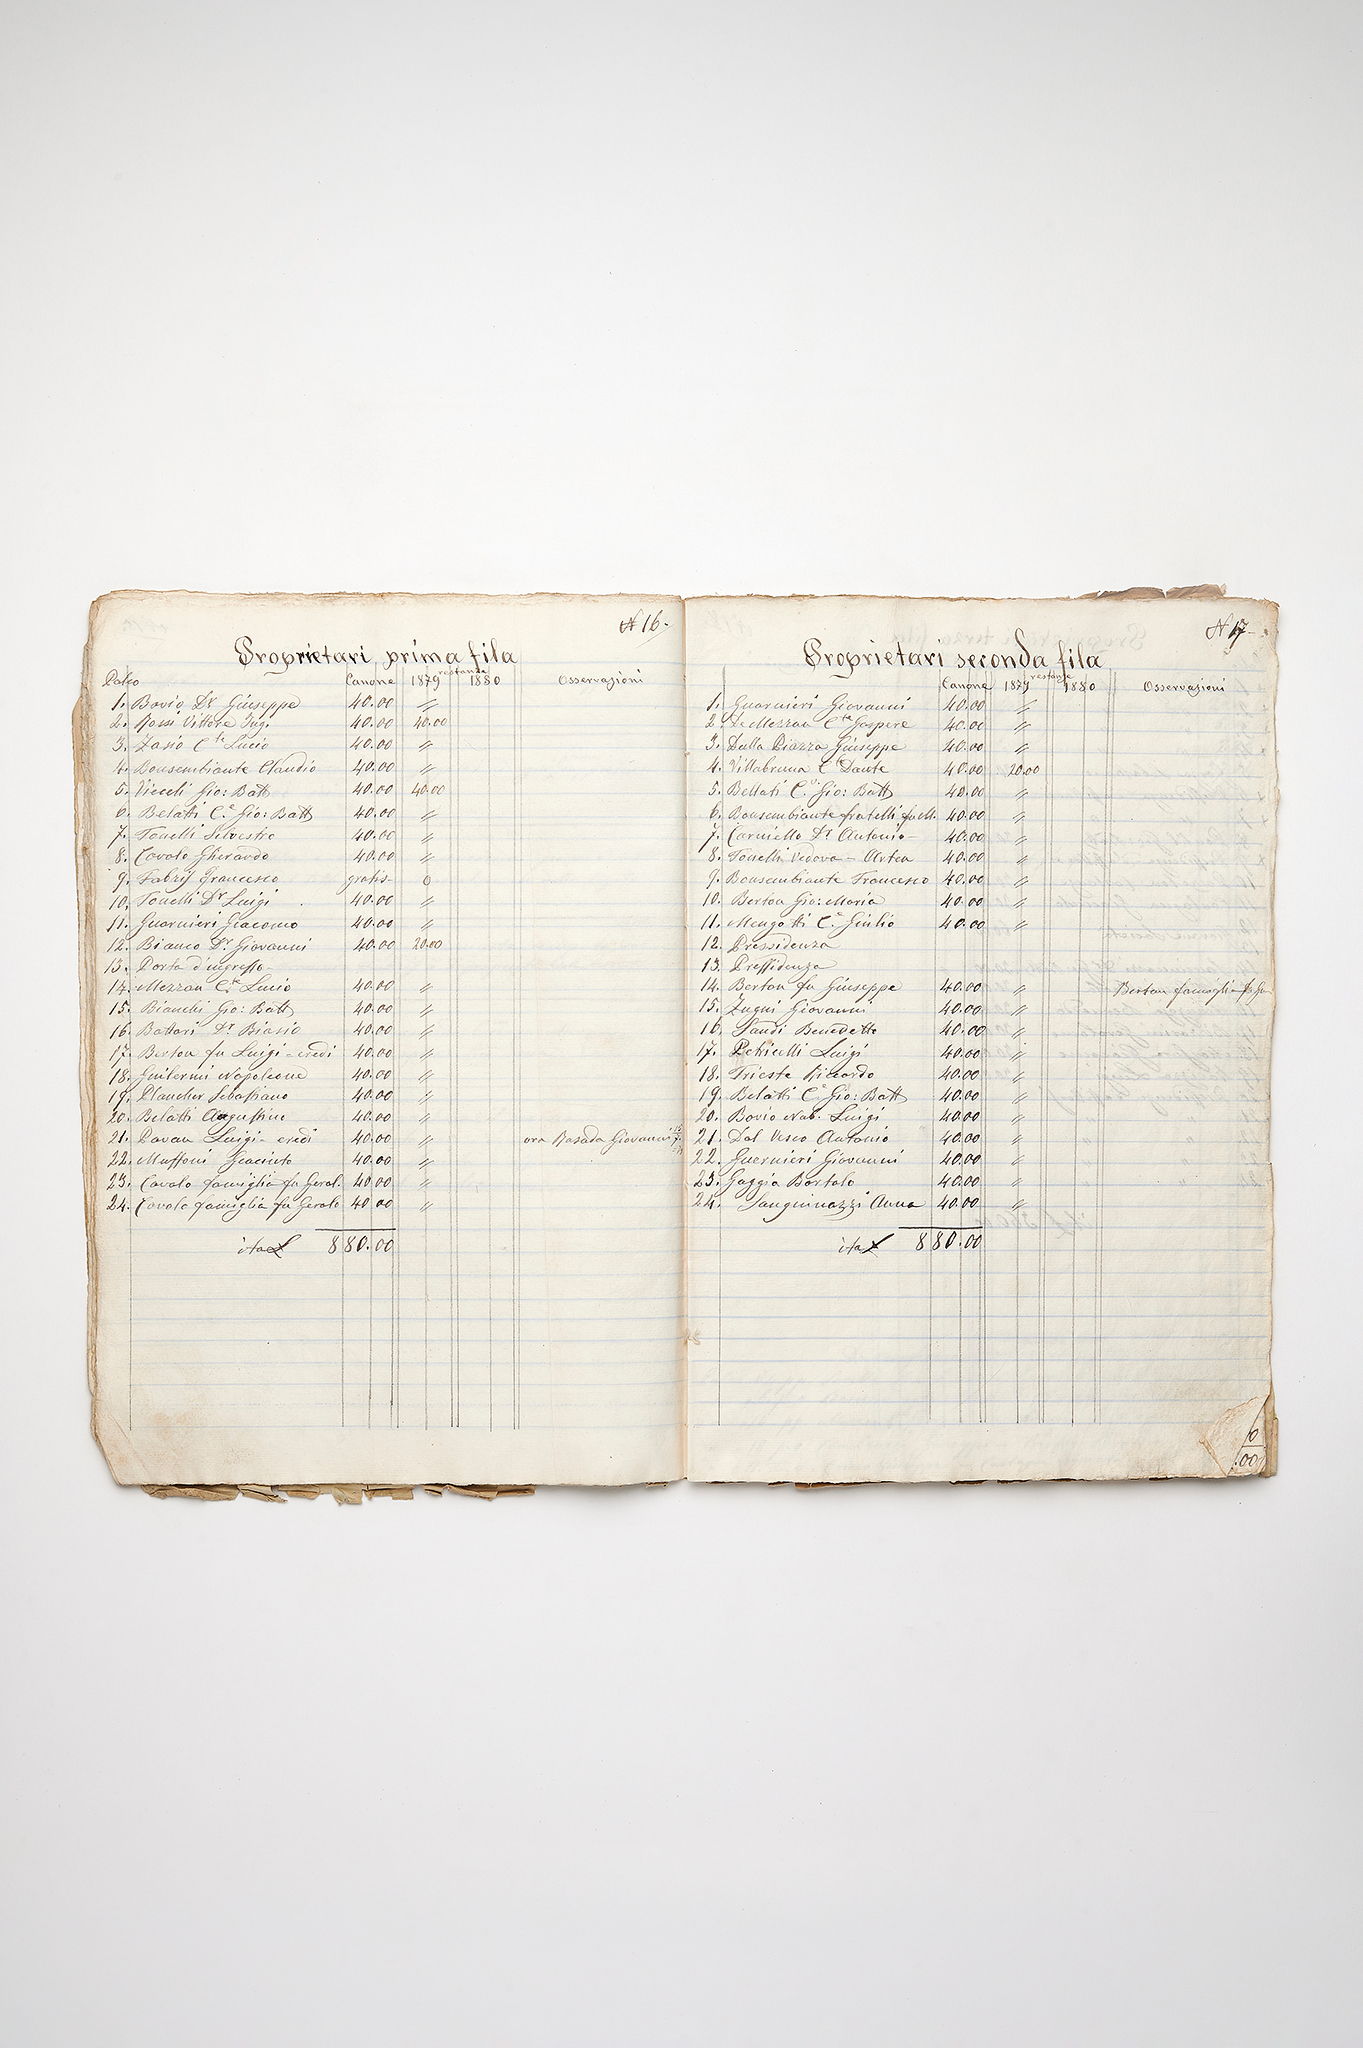 N 16.
Proprietari prima fila
Palco Canone 1879 restanze 1880 Osservazioni
1. Bovio Dr Giuseppe 40.00 "
2. Rossi Vittore Ing. 40.00 40.00
3. Zasio Cte Lucio 40.00 "
4. Bonsembiante Claudio 40.00 "
5. Vieceli Gio: Batt 40.00 40.00
6. Belatti C.e Gio: Batt 40.00 "
7. Tonelli Silvestro 40.00 "
8. Covolo Gherardo 40.00 "
9. Fabrij Francesco gratis- 0
10. Tonelli Dr Luigi 40.00 "
11. Guarnieri Giacomo 40.00 "
12. Bianco Dr Giovanni 40.00 20.00
13. Porta d'ingresso-
14. Mezzan Cte Lucio 40.00 "
15. Bianchi Gio: Batt 40.00 "
16. Bottari Dr Biasio 40.00 "
17. Berton fu Luigi - eredi 40.00 "
18. Guilermi Napoleone 40.00 "
19. Plancher Sebastiano 40.00 "
20. Belatti Augustine 40.00 "
21. Pavan Luigi - eredi 40.00 " ora Rasada Giovanni
22. Muffoni Giacinto 40.00 "
23. Covolo famiglia fu Gerol. 40.00 "
24. Covolo famiglia fu Gerolo 40.00 "
ital 880.00
N 17-
Proprietari seconda fila
Canone 1879 restanze 1880 Osservazioni
1. Guarnieri Giovanni 40.00 "
2. De Mezzan Cte Gaspere 40.00 "
3. Dalla Piazza Giuseppe 40.00 "
4. Villabruna Cte Dante 40.00 20.00
5. Bellati C.e Gio: Batt 40.00 "
6. Bonsembiante fratelli fu M. 40.00 "
7. Carniello Dr Antonio- 40.00 "
8. Tonelli Vedova - Arten 40.00 "
9. Bonsembiante Francesco 40.00 "
10. Berton Gio: Maria 40.00 "
11. Mengotti C.e Giulio 40.00 "
12. Pressidenza
13. Pressidenza
14. Berton fu Giuseppe 40.00 " Berton famiglia fu
15. Zugni Giovanni 40.00 "
16. Sandi Benedetto 40.00 "
17. Petricelli Luigi 40.00 "
18. Trieste Riccardo 40.00 "
19. Belatti C.e Gio: Batt 40.00 "
20. Bovio Nob. Luigi 40.00 "
21. Dal Vesco Antonio 40.00 "
22. Guernieri Giovanni 40.00 "
23. Gaggia Bortolo 40.00 "
24. Sanguinazzi Anna 40.00 "
ital 880.00
0
.00